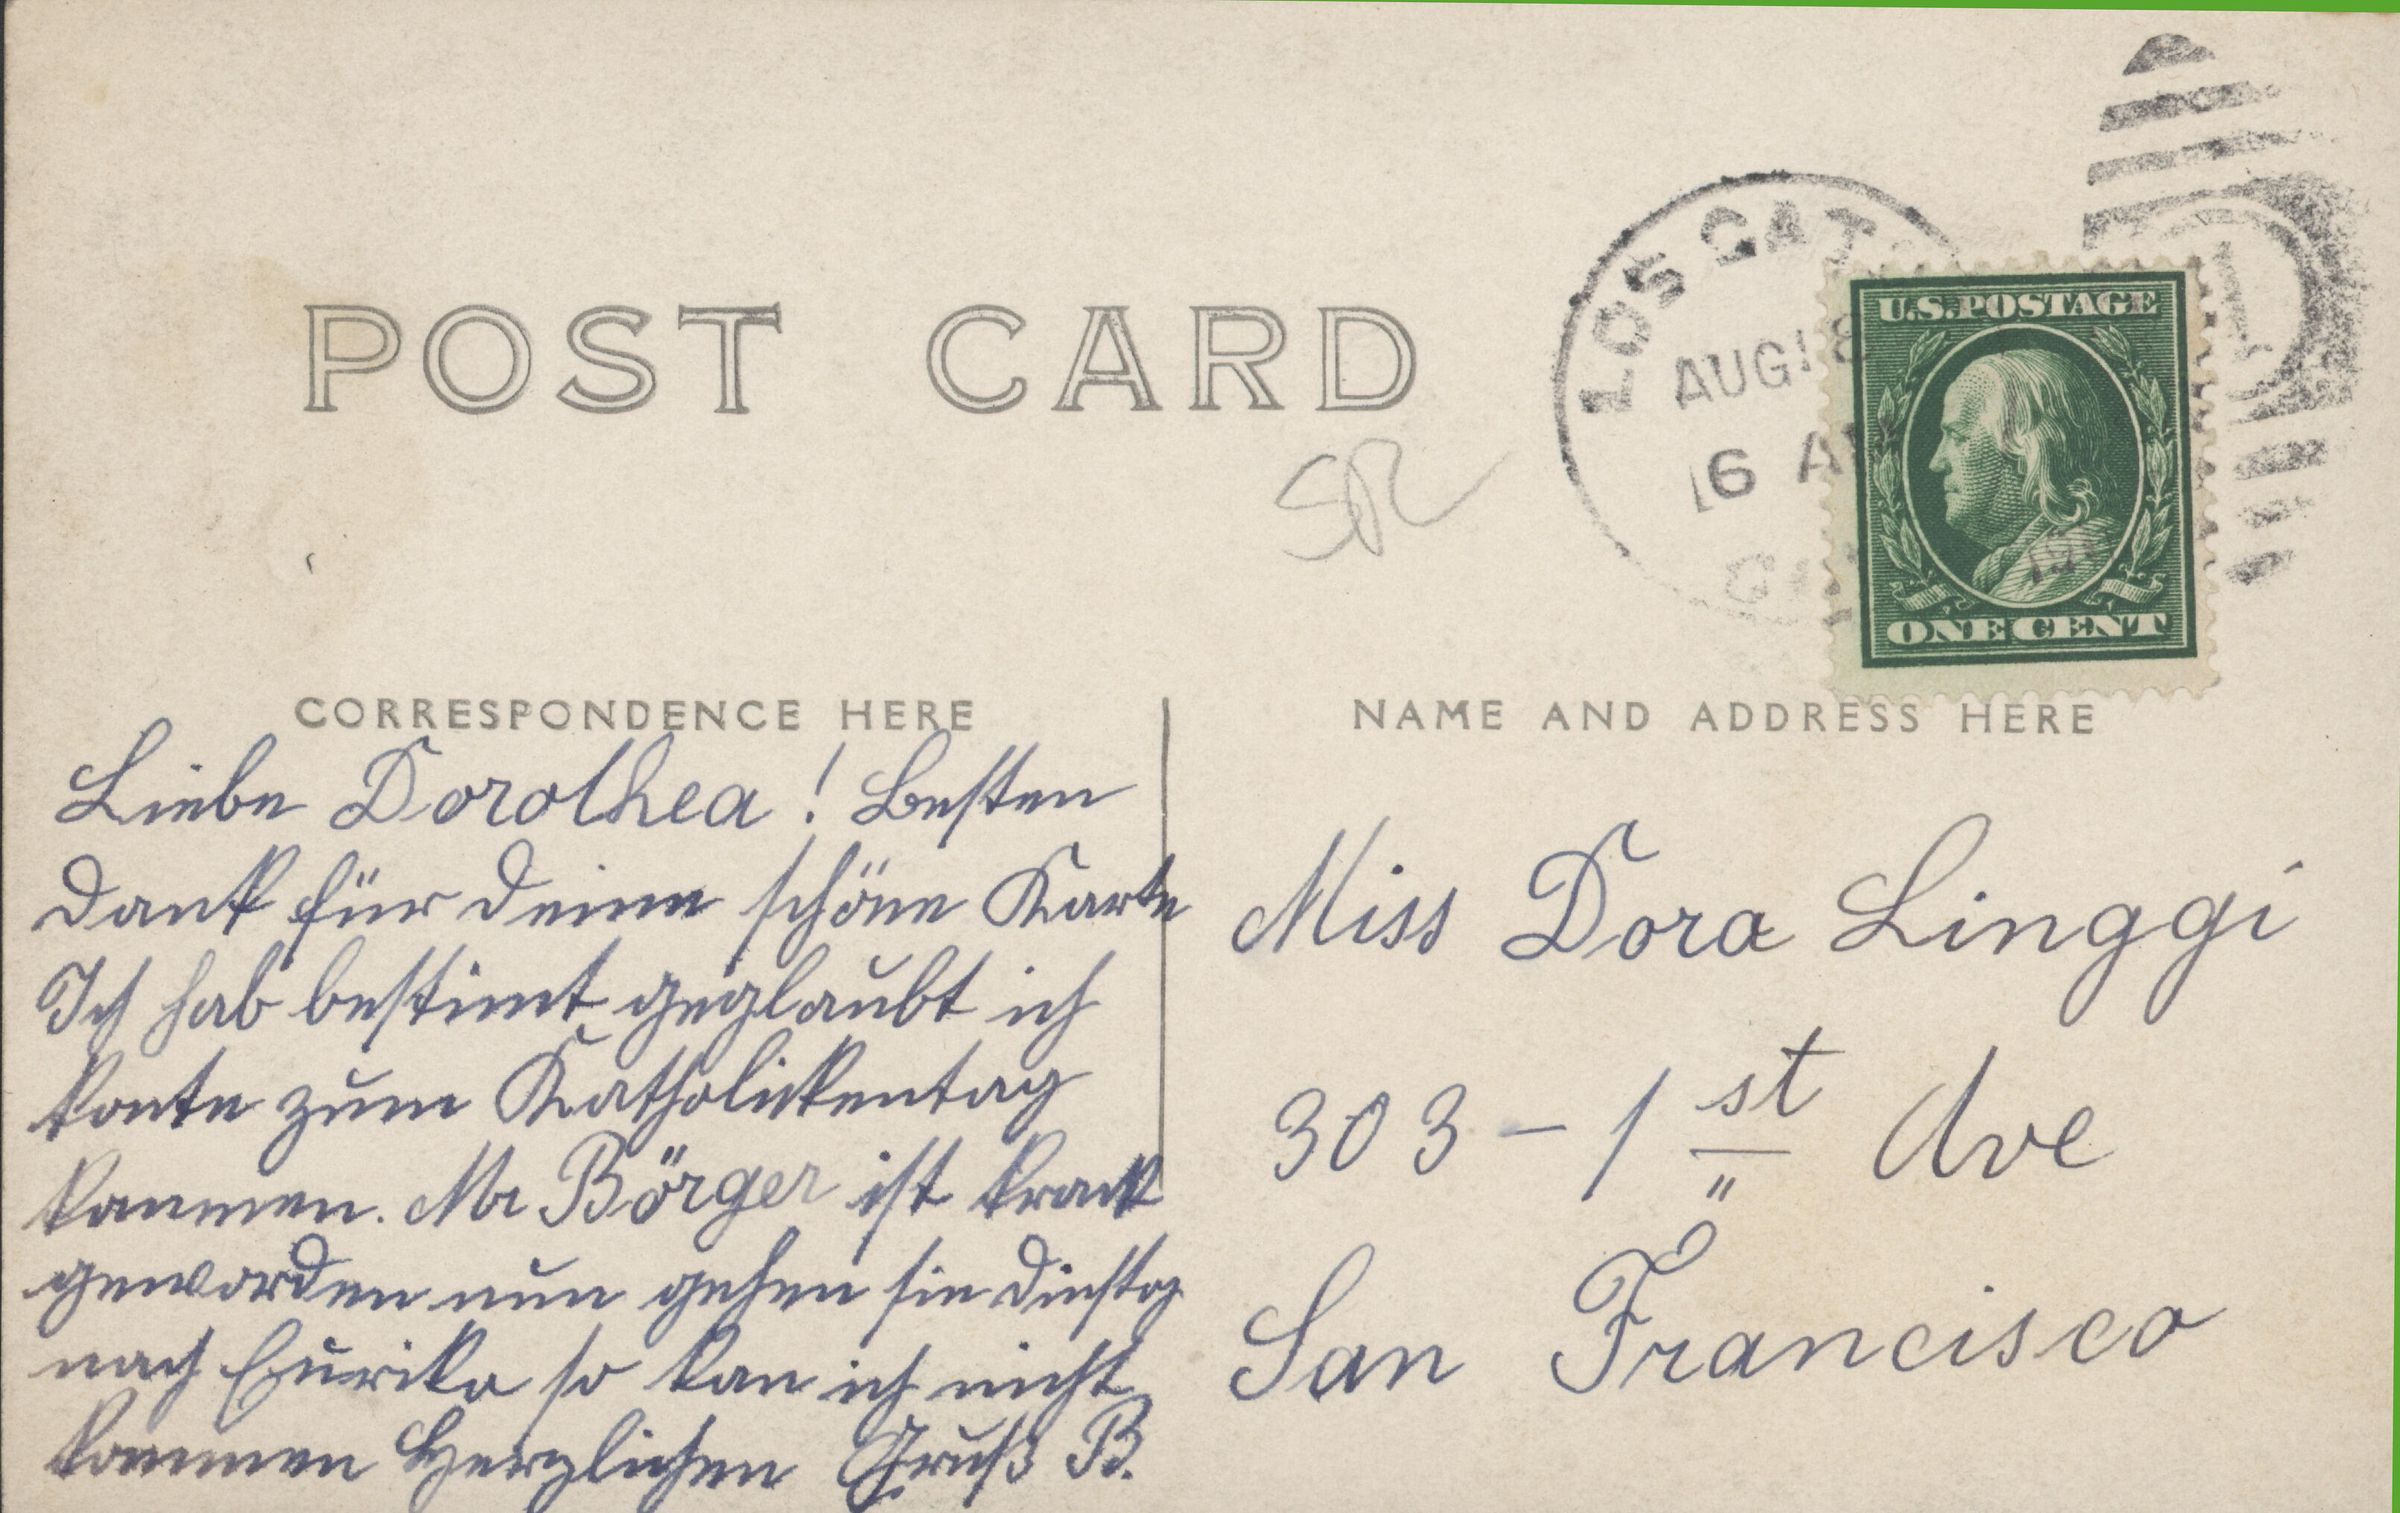 POST CARD
LOS GAT
AUG 18
6 A
U.S. POSTAGE
ONE CENT
SR
CORRESPONDENCE HERE
NAME AND ADDRESS HERE
Liebe Dorothea! Besten
Dank für Deine schöne Karte
Ich hab bestimt geglaubt ich
konte zum Katholickentag
kommen. Mr Börger ist krank
geworden nun gehen sie Dinstag
nach Eurika so kan ich nicht
kommen Herzlichen Gruß B.
Miss Dora Linggi
303 – 1st Ave
San Francisco